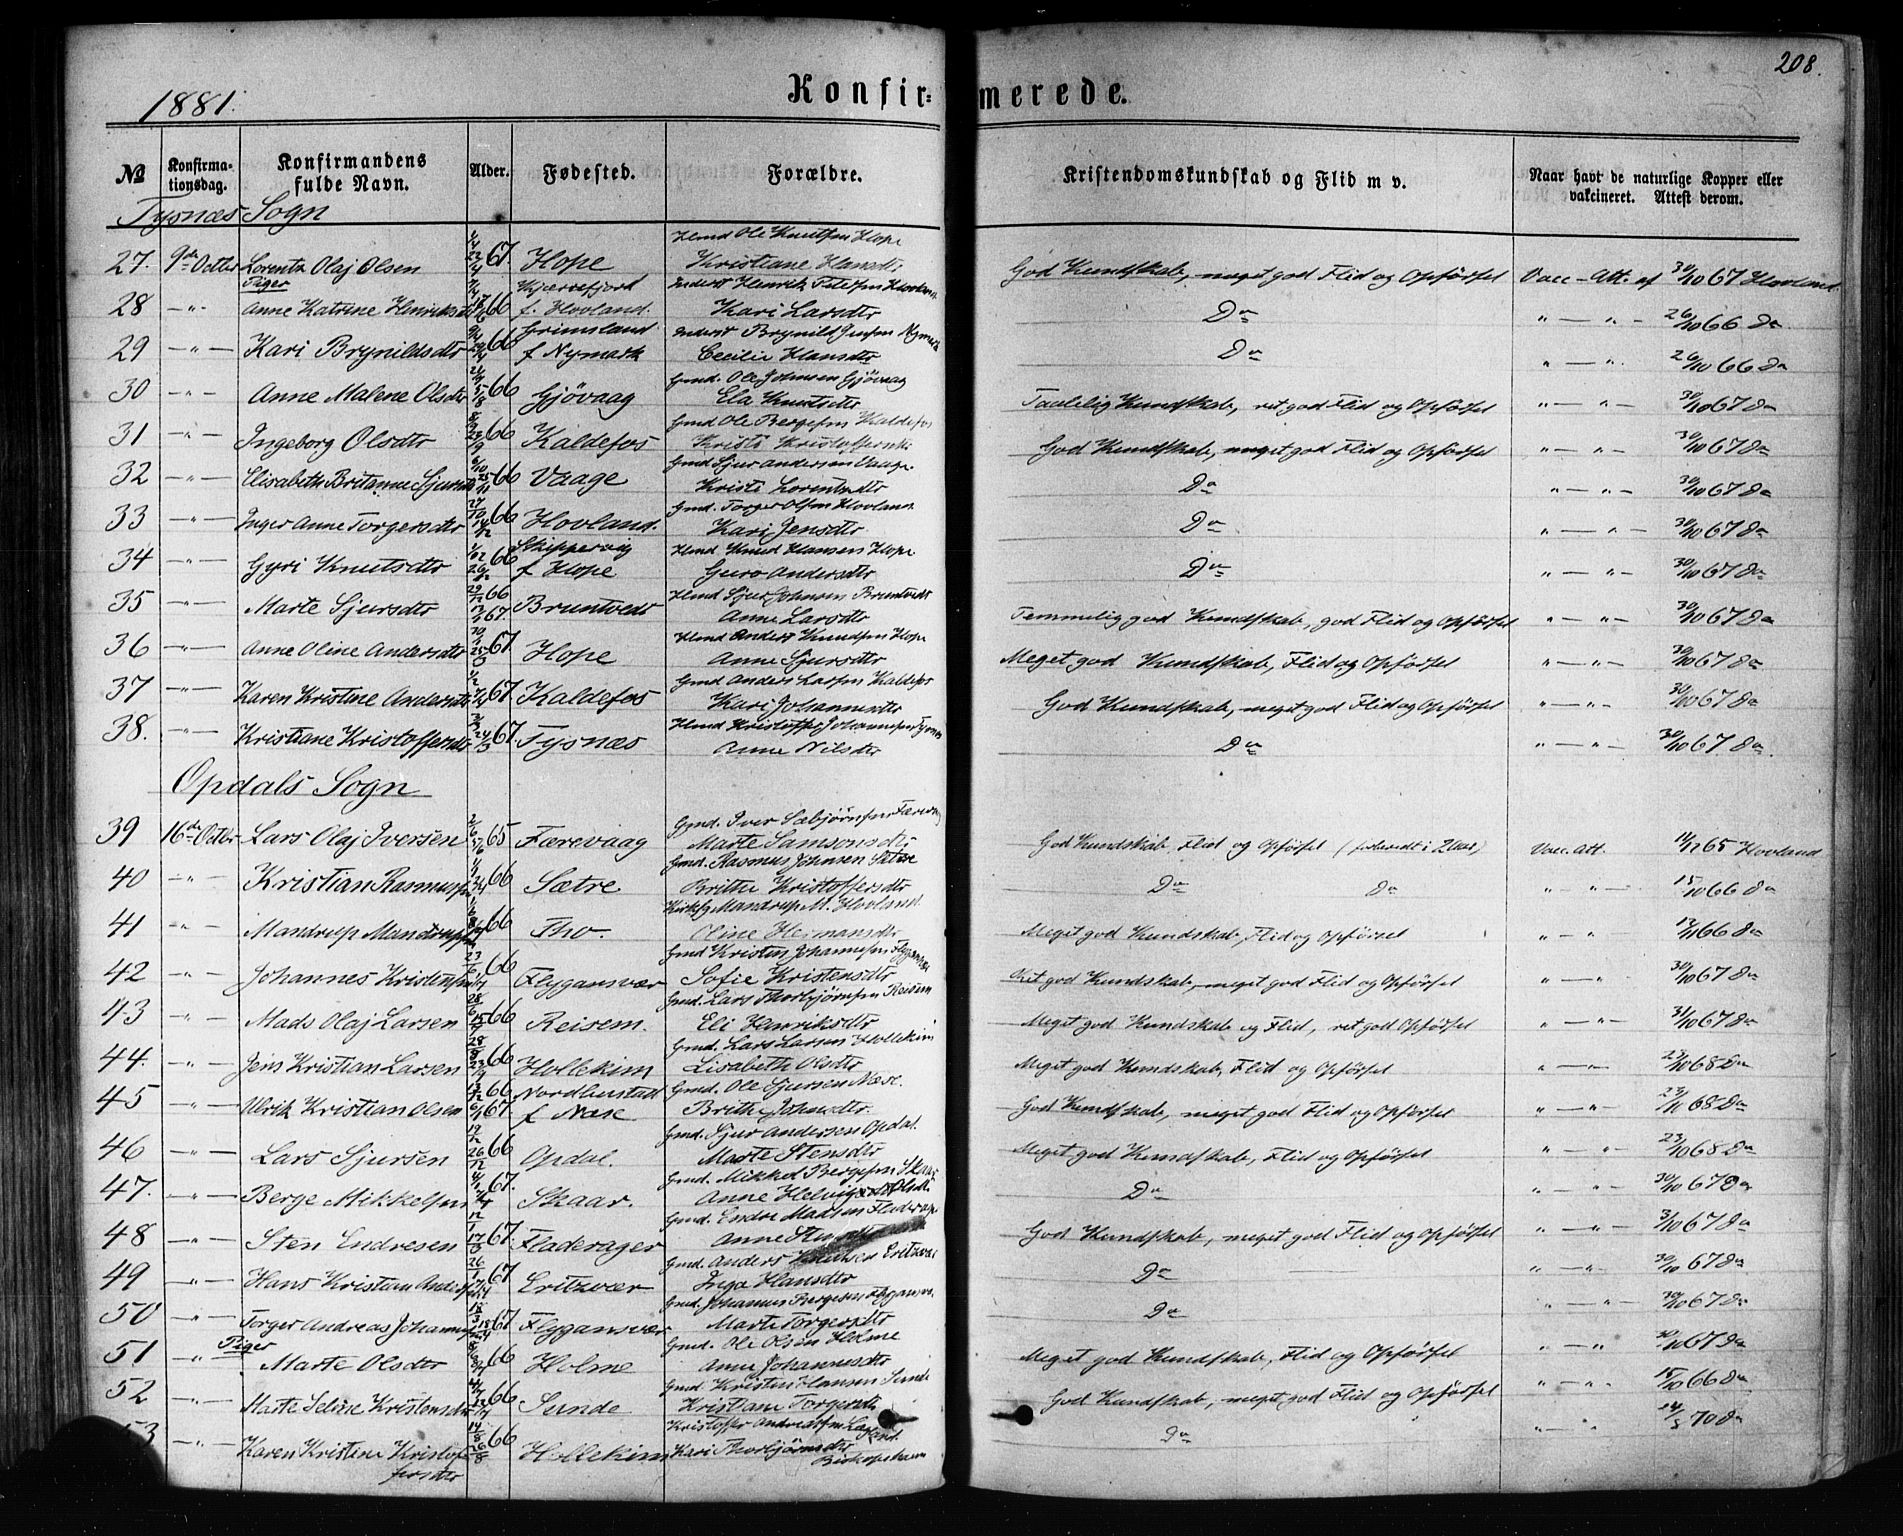 208.
1881.
Konfir= merede.
№ Konfirma-tionsdag. Konfirmandens fulde Navn. Alder. Fødested. Forældre. Kristendomskundskab og Flid m v. Naar havt de naturlige Kopper eller vakcineret. Attest derom.
Tysnæs Sogn
Hmd Ole Knutsen Hope
27. 9de Octbr Lorentz Olaj Olsen 67 Hope Kristiane Hansdtr God Kundskab, meget god Flid og Opførsel Vacc-Att. af 30/10 67 Hovland
Piger
28 " Anne Katrine Henriksdtr 66 f. Hovland. Kari Larsdtr Do " — " 26/10 66 Do
Grimsland
29 — " — Kari Brynildsdtr 66 f Nymark Cecilie Hansdtr Do " — " 26/10 66 Do
Gmd. Ole Johnsen Gjøvaag
30 — " — Anne Malene Olsdtr 66 Gjøvaag Ela Knutsdtr Taalelig Kundskab, ret god Flid og Opførsel " — " 30/10 67 Do
Gmd Ole Bergesen Kaldefos
31 — " — Ingeborg Olsdtr 66 Kaldefos God Kundskab, meget god Flid og Opførsel " — " 30/10 67 Do
Gmd Sjur Andersen Vaage
32 — " — Elisabeth Britanne Sjursdtr 66 Vaage Kristi Lorentsdtr Do " — " 30/10 67 Do
Gmd. Torger Olsen Hovland
33 — " — Inger Anne Torgersdtr 66 Hovland. Kari Jensdtr Do " — " 30/10 67 Do
Skippervig Hmd Knud Hansen Hope
34 — " — Gyri Knutsdtr 66 f Hope Guro Andersdtr Do " — " 30/10 67 Do
Hmd Sjur Johnsen Bruntvedt
35 — " — Marte Sjursdtr 66 67. Bruntvedt Anne Larsdtr Temmelig god Kundskab, god Flid og Opførsel " — " 30/10 67 Do
Hmd Anders Knudsen Hope
36 — " — Anne Oline Andersdtr 67. Hope Anne Sjursdtr Meget god Kundskab, Flid og Opførsel " — " 30/10 67 Do
Gmd Anders Larsen Kaldefos
37 — " — Karen Kristine Andersdtr 67. Kaldefos Kari Johannesdtr God Kundskab, meget god Flid og Opførsel " — " 30/10 67 Do
Hmd Kristoffer Johannesen Tysnæs
38. — " — Kristiane Kristoffersdtr 67. Tysnæs Anne Nilsdtr Do " — " 30/10 67 Do.
Opdals Sogn
Gmd. Iver Sæbjørnsen Færevaag
39 16de Octbr Lars Olaj Iversen 65 Færevaag Marte Samsonsdtr God Kundskab, Flid og Opførsel ( i 2 Aar) Vacc. Att. 14/12 65 Hovland
Gmd. Rasmus Johnsen Sætre
40 — " — Kristian Rasmussen 66 Sætre Britha Kristoffersdtr Do Do " — " 15/10 66 Do
Mandrup M. Hovland
41 — " — Mandrup Mandrupsen 66 Tho. Oline Hermansdtr Meget god Kundskab, Flid og Opførsel " — " 13/11 66 Do
Gmd Kristen Johannesen Flygansvær
42 — " — Johannes Kristensen 66 Flygansvær Sofie Kristensdtr Ret god Kundskab, meget god Flid og Opførsel " — " 30/10 67 Do
Gmd. Lars Thorbjørnsen Reisem
43 — " — Mads Olaj Larsen 66 Reisem. Eli Henriksdtr Meget god Kundskab og Flid, ret god Opførsel " — " 31/10 67 Do
Gmd. Lars Larsen Hollekim
44. — " — Jens Kristian Larsen 66 Hollekim Lisabeth Olsdtr Meget god Kundskab, Flid og Opførsel " — " 23/10 68 Do
Nordhustad Gmd. Ole Sjursen Næse.
45 — " — Ulrik Kristian Olsen 66 67. f Næse Brithe Johnsdtr. God Kundskab, meget god Flid og Opførsel " — " 68 Do
Gmd. Sjur Andersen Opdal.
46 — " — Lars Sjursen 66 Opdal. Marte Stensdtr Meget god Kundskab, Flid og Opførsel " — " 23/10 68 Do
Gmd. Mikkel Bergesen Skaar
47. — " — Berge Mikkelsen 67. Skaar. Anne Helvig Olsdtr Do " — " 30/10 67 Do
Gmd. Endre Madsen
48 — " — Sten Endresen 67. Fladerager Anne God Kundskab, meget god Flid og Opførsel " — " 3/10 67 Do
Gmd Anders Eritzvær
49 — " — Hans Kristian 67 Eritzvær Inga Hansdtr Do " — " 30/10 67 Do
Gmd. Johannes Bergesen
50 — " — Torger Andreas 67. Flygansvær Marte Torgersdtr Do " — " 30/10 67 Do
Piger Gmd. Ole Olsen Holme
51 — " — Marte Olsdtr 66 Holme Anne Johannesdtr Meget god Kundskab, Flid og Opførsel " — " 67 Do
Gmd Kristen Hansen Sunde
52 — " — Marte Seline Kristensdtr 66 Sunde Kristiane Torgersdtr God Kundskab, meget god Flid og Opførsel " — " 15/10 66 Do
Kristoffer
53 — " — Karen Kristine Kristof- 66 Hollekim Kari Thorbjørnsdtr Do " 70 Do
fersdtr